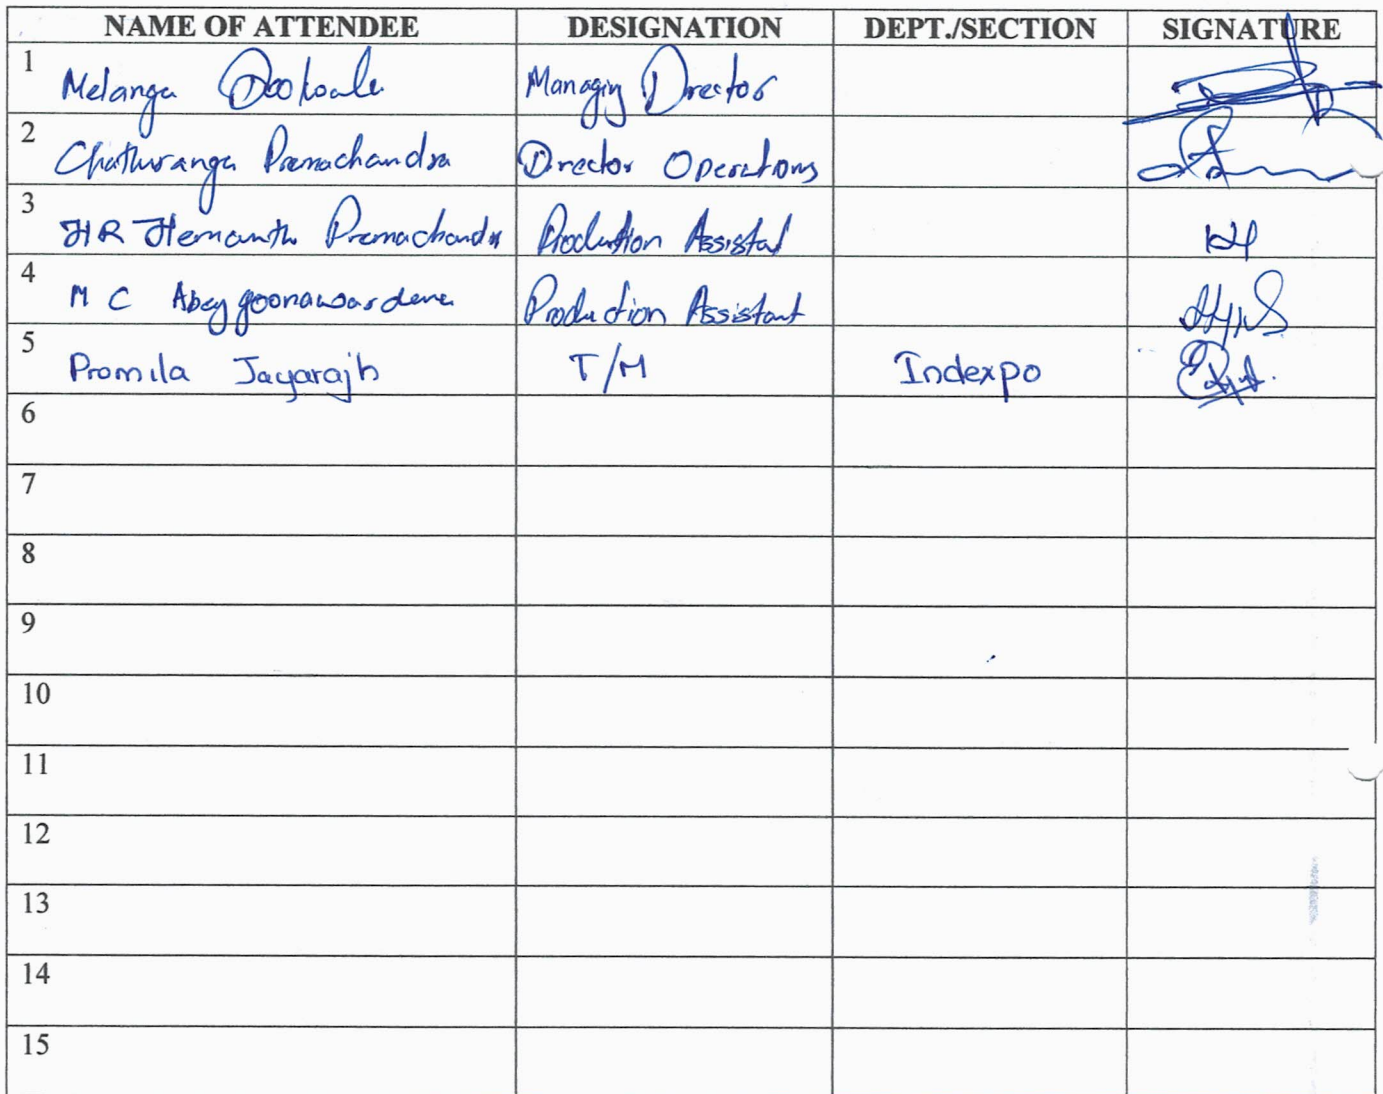 NAME OF ATTENDEE DESIGNATION DEPT./SECTION SIGNATURE
1 Melanga Managing Director
2 Chathuranga Premachandra Director Operations
3 HR Hemantha Premachandra Production Assistal
4 M C Abeygoonawardena Production Assistant
5 Promila Jayarajh T/M Indexpo
6
7
8
9
10
11
12
13
14
15